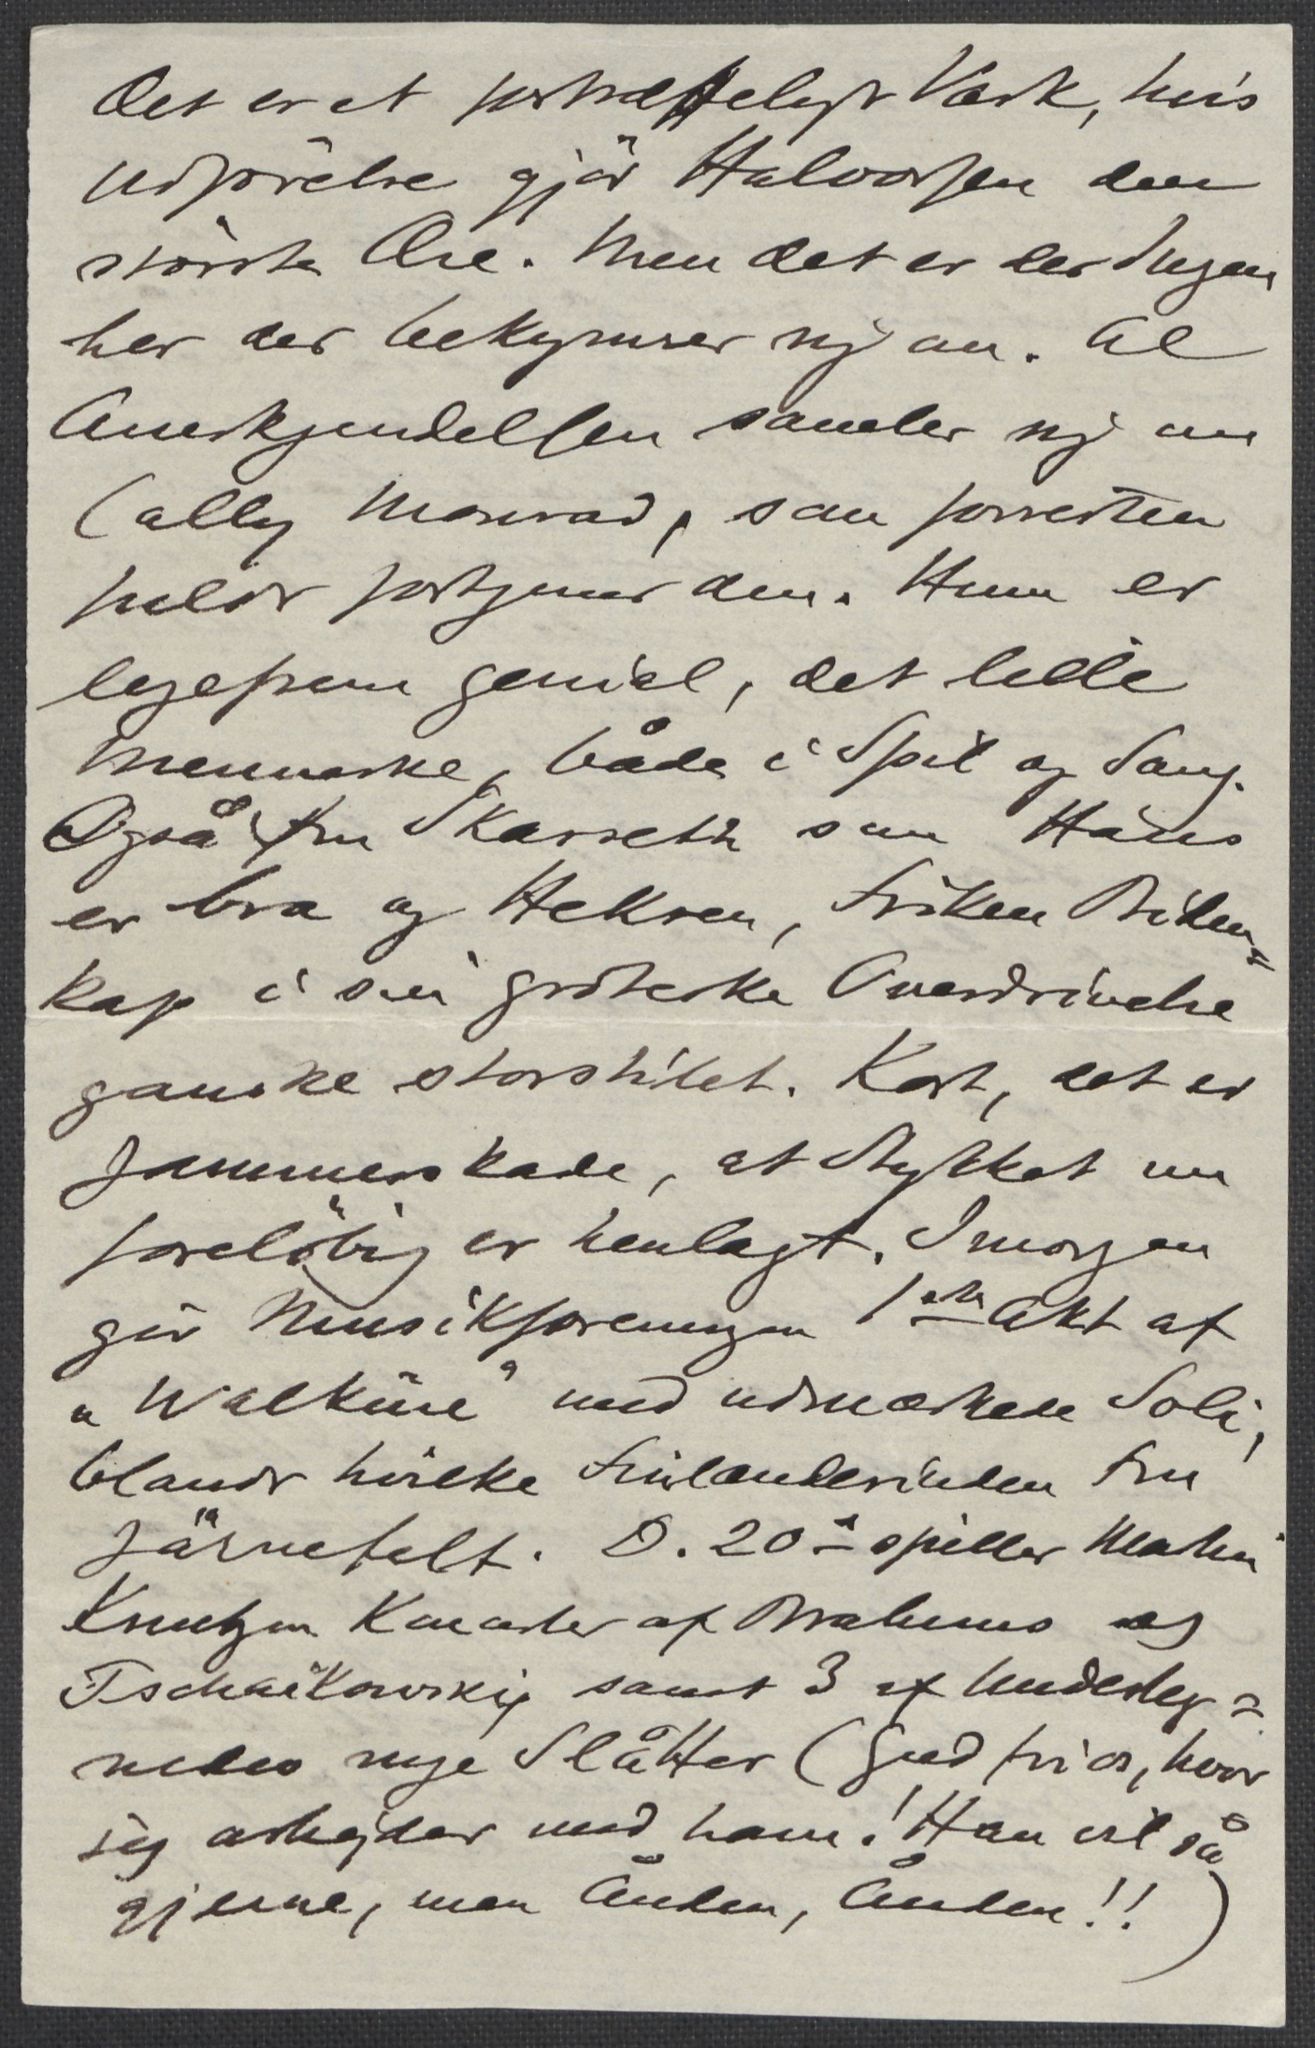 Det er et fortræffeligt Værk, hvis
Udførelse gjør Halvorsen den
største Ære. Men det er der Ingen
her der bekymrer sig om. Al
Anerkjendelsen samler sig om
Cally Monrad, som forresten
fuldt fortjener den. Hun er
ligefrem genial, det lille
Menneske, både i Spil og Sang.
Også Fru Skarseth som Hans
er bra og Heksen, Frøken Biden=
kap i sin groteske Overdrivelse
ganske storstilet. Kort, det er
Jammerskade, at Stykket nu
foreløbig er henlagt. Imorgen
gir Musikforeningen 1ste Akt af
„Walküre" med udmærkede Soli,
blandt hvilke Finlænderinden Fru
Järnefelt. D. 20de spiller Martin
Knutzen Koncerter af Brahms og
Tschaikowsky samt 3 af Undertegn=
nedes nye Slåtter (Gud fri os, hvor
jeg arbejder med ham! Han vil så
gjerne, men Ånden, Ånden!!)